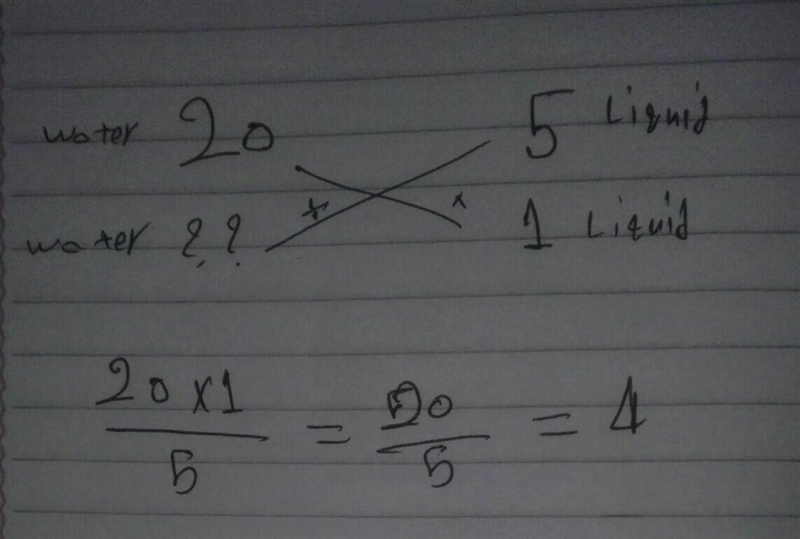 water 20 5 Liquid
water ?? × × 1 Liquid
20 x 1 / 5 = 20 / 5 = 4